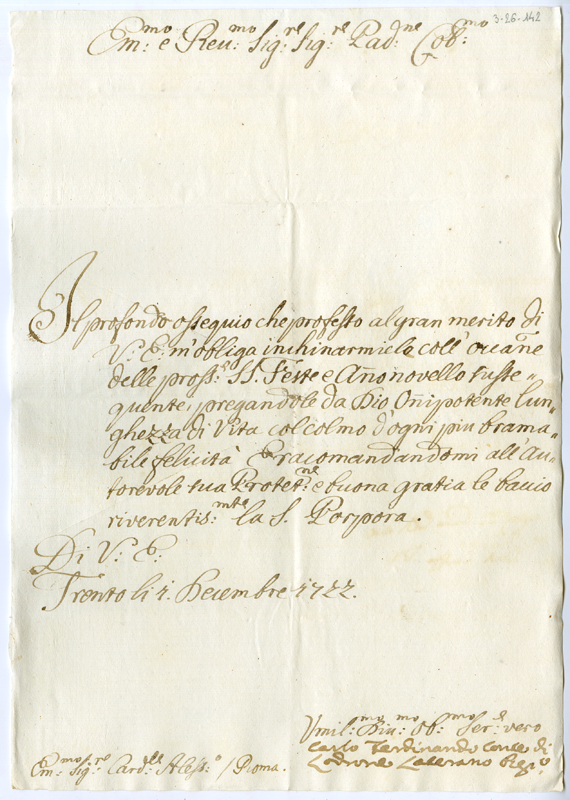 3-26-142
Em:mo e Reu:mo Sig:re Sig:re Pad:ne Coll:mo
Il profondo ossequio che professo al gran merito di
V: E: m'obliga inchinarmiele coll' occ.ne
delle pross:e SS. Feste e Año novello susse=
quente, pregandole da Dio Oñipotente lun=
ghezza di Vita col colmo d'ogni piu brama=
bile felicità Et racomandandomi all' Au=
torevole sua Protet:ne e buona gratia le baccio
riverentis:mte la S. Porpora.
Di V: E:
Trento li 1. Decembre 1722.
Vmil:mo Diu:mo Ob:mo Ser:e vero
Carlo Ferdinando Conte di
Lodrone Laterano
Em:mo Sig:re Card:le Aless:o / Roma.